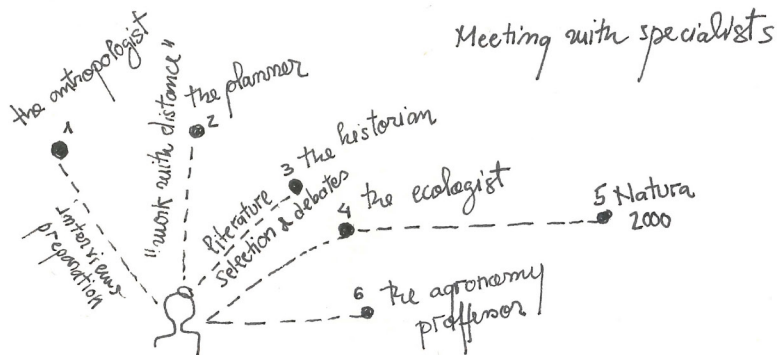 Meeting with specialists
the antropologist
1
Interviews
preparation
"work with distance"
the planner
2
3 the historian
literature
selection & debates
4 the ecologist
5 Natura
2000
6 the agronomy
proffesor